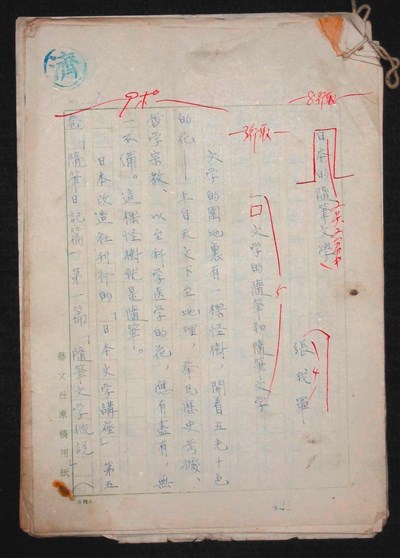 日本的隨筆文學
張我軍
一 文学的隨筆和隨筆文学
文学的園地裏有一棵怪樹,開着五光十色
的花——上自天文下至地理,舉凡歷史考
哲学宗教、以至科学医学的花,應有盡有,無
一不備。這棵怪樹就是隨筆。
日本改造社刊行的「日本文学講座」第五
「隨筆日記篇」第一篇「隨筆文学概說」(
藝文社原稿用紙
濟
9ポ
5
4